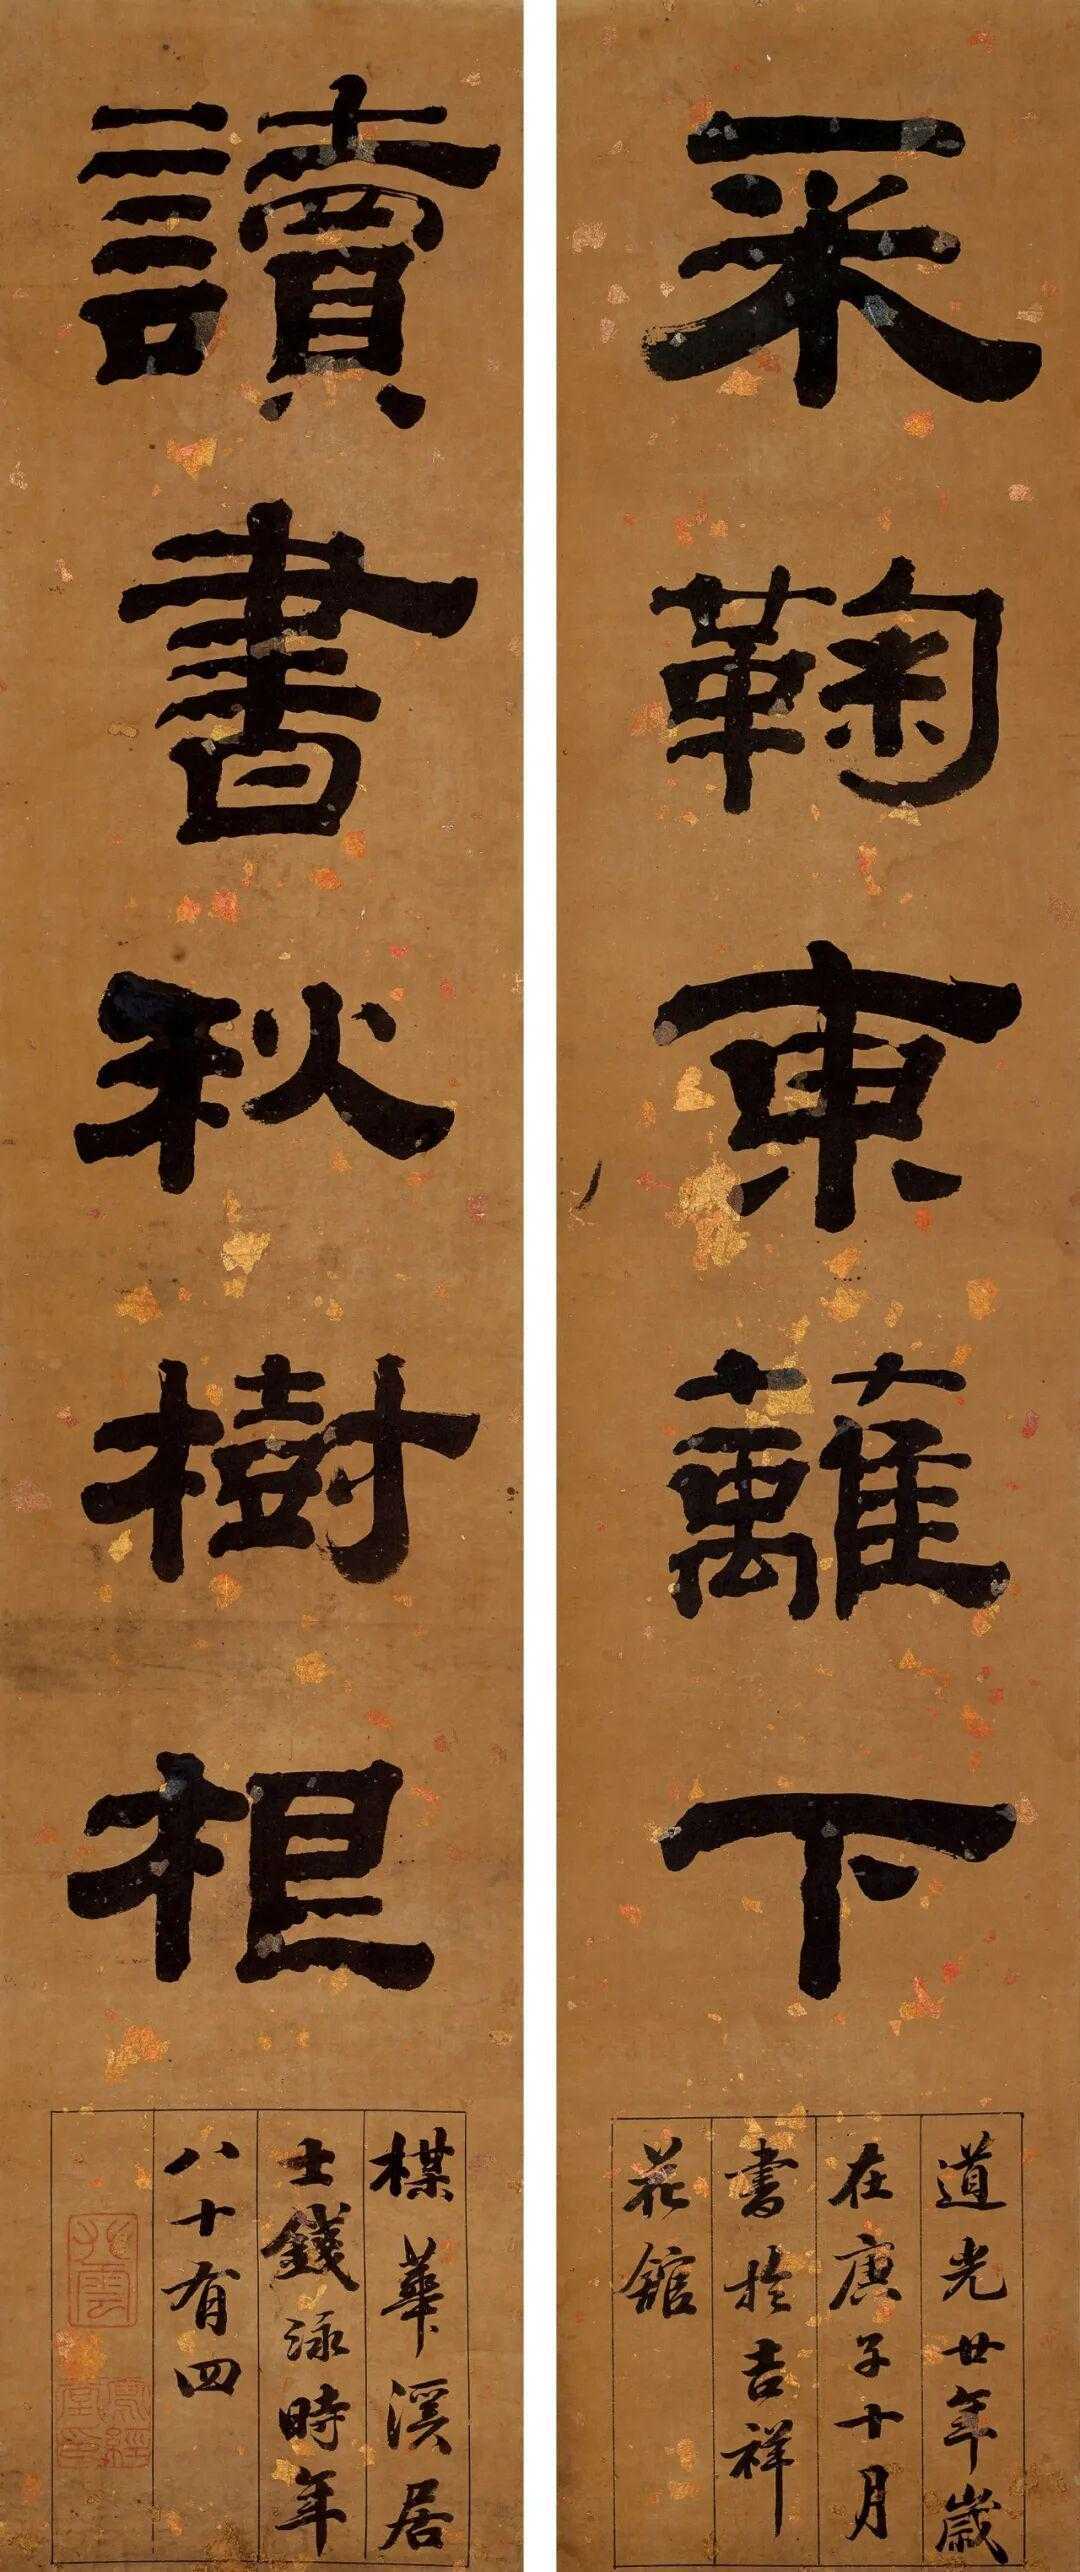 采鞠東蘺下
道光廿年歲
在庚子十月
書於吉祥
花館
讀書秋樹根
楳華溪居
士錢泳時年
八十有四